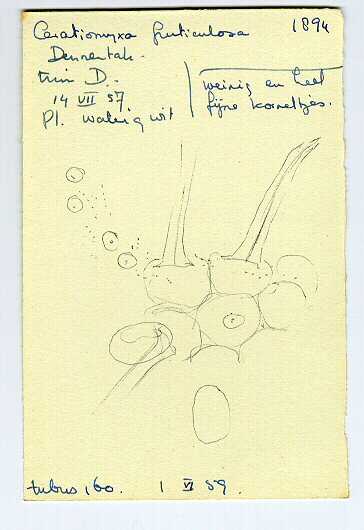 Ceratiomyxa fruticulosa 1894
Dennentak.
tuin D.
14 VII 57
Pl. waterig wit
weinig en heel
fijne korreltjes.
tubus 160. 1 VI 59.